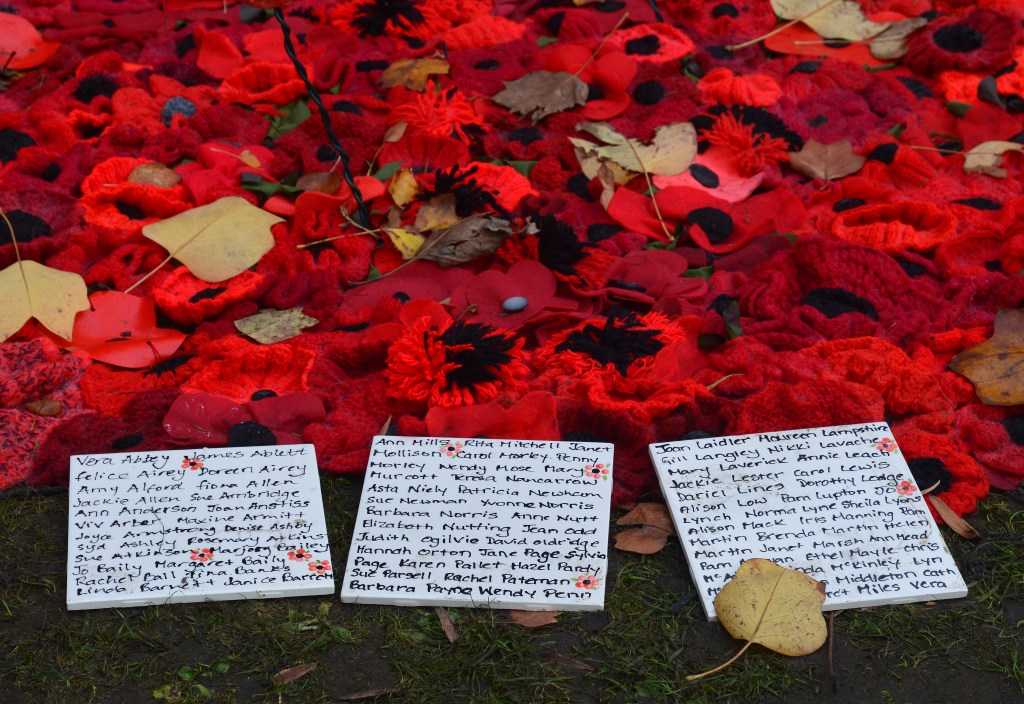 Vera Abley James Ablett
felice Airey Doreen Airey
Amy Alford fiona Allen
Jackie Allen Sue Armbridge
Ann Anderson Joan Anstiss
Viv Arber Maxine Armitt
Joyce Armstrong Denise Ashby
Syd Ashby Rosemary Atkins
Sue Atkinson Marjory Bailey
Jo Baily Margaret Baily
Rachel Banks
Linda Barrett Janice Barrett
Ann Mills Rita Mitchell Janet
Mollison Carol Morley Penny
Morley Wendy Mose Mary
Murcott Teresa Nancarrow
Asta Niely Patricia Newhcom
Sue Newman Yvonne Norris
Barbara Norris Anne Nutt
Elizabeth Nutting Jean Odd
Judith Ogilvie David Oldridge
Hannah Orton Jane Page Sylvia
Page Karen Pallet Hazel Pardy
Sue Parsell Rachel Pateman
Barbara Payne Wendy Penn
Joan Laidler Maureen Lampshire
Gill Langley Nikki Lavache
Mary Laverick Annie Leac
Jackie Lester Carol Lewis
Dariel Lines Dorothy Lodge
Alison Low Pam Lupton Jo
Lynch Norma Lyne Sheila Lyons
Alison Mack Iris Manning Pam
Martin Brenda Martin Helen
Martin Janet Marsh Ann Mead
Pam Ethel Mayle Chris
McKinley Lyn
Middleton Cath
Miles Vera